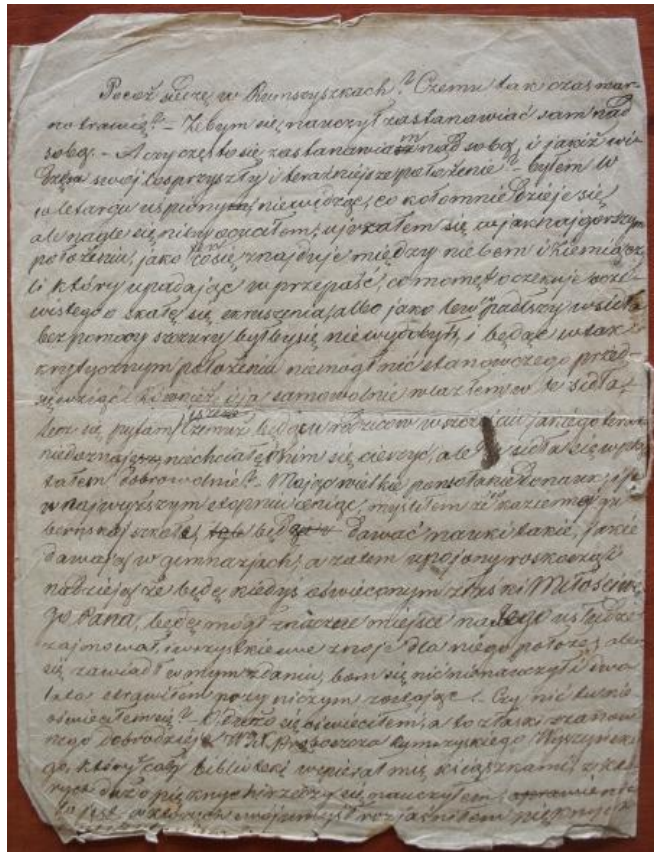 Pocóż siedzę w Rumszyszkach? Czemu tak czas mar-
no trawię? – Żebym się nauczył zastanawiać sam nad
sobą. – A czy często się zastanawiam nad sobą, i jakiż wi-
dzę swój los przyszły i teraźniejsze położenie? – byłem w
w letargu uspiony niewidząc, co koło mnie dzieje się,
ale nagle się niby ocuciłem, ujrzałem się w jak najgorszym
położeniu, jako ten co się znajduje między niebem i ziemią, cz-
li który upadając w przepaść, co moment oczekuje
wistego o skałę się skruszenia, albo jako lew padłszy w sidła
bez pomocy szczury byłby się nie wydobył, i będąc w tak
krytycznym położeniu niemógł nic stanowczego przed-
się wziąć. Również i ja samowolnie wlazłem w te sidła,
lecz się pytam jeszcze Czemuż będąc u rodziców w szczęściu jakiego teraz
niedoznaję, niechciałem nim się cieszyć, ale w sidła się w
tałem dobrowolnie? – Mając wielkie do nauk, i je
w najwyższym stopniu ceniąc, myślałem że w gu-
berńskiej szkole, będą dawać nauki takie, jakie
dawają w gimnazjach, a zatem upojony roskoszą
nadzieją że będę kiedyś oświeconym z łaski Miłościwe-
go Pana, będę mógł znaczne miejsce na Jego usłudze
zajmować, i wszystkie me znoje dla niego położę, ale
się zawiodł w mym zdaniu, bom się nic nienauczył i dwa
lata strawiłem przy niczym zostając. – Czy nic tu nie
oświeciłem się? – O dużo się oświeciłem, a to z łaski szanow-
nego dobrodzieja W.X. Proboszcza Rumszyskiego Wyszyńskie-
go, który z całej biblioteki wspierał mię książkami, z któ-
rych dużo pięknych rzeczy się nauczyłem,
to jest w których swój umysł rozjaśniłem